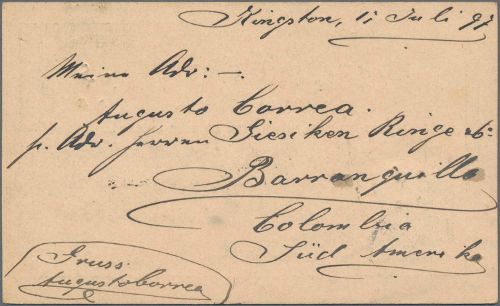 Kingston, 11 Juli 97
Meine Adr: —.
Augusto Correa.
p. Adr. Herren Giesiken Ringe & Co:
Barranquilla
Colombia
Süd Amerika
Gruss.
Augusto Correa